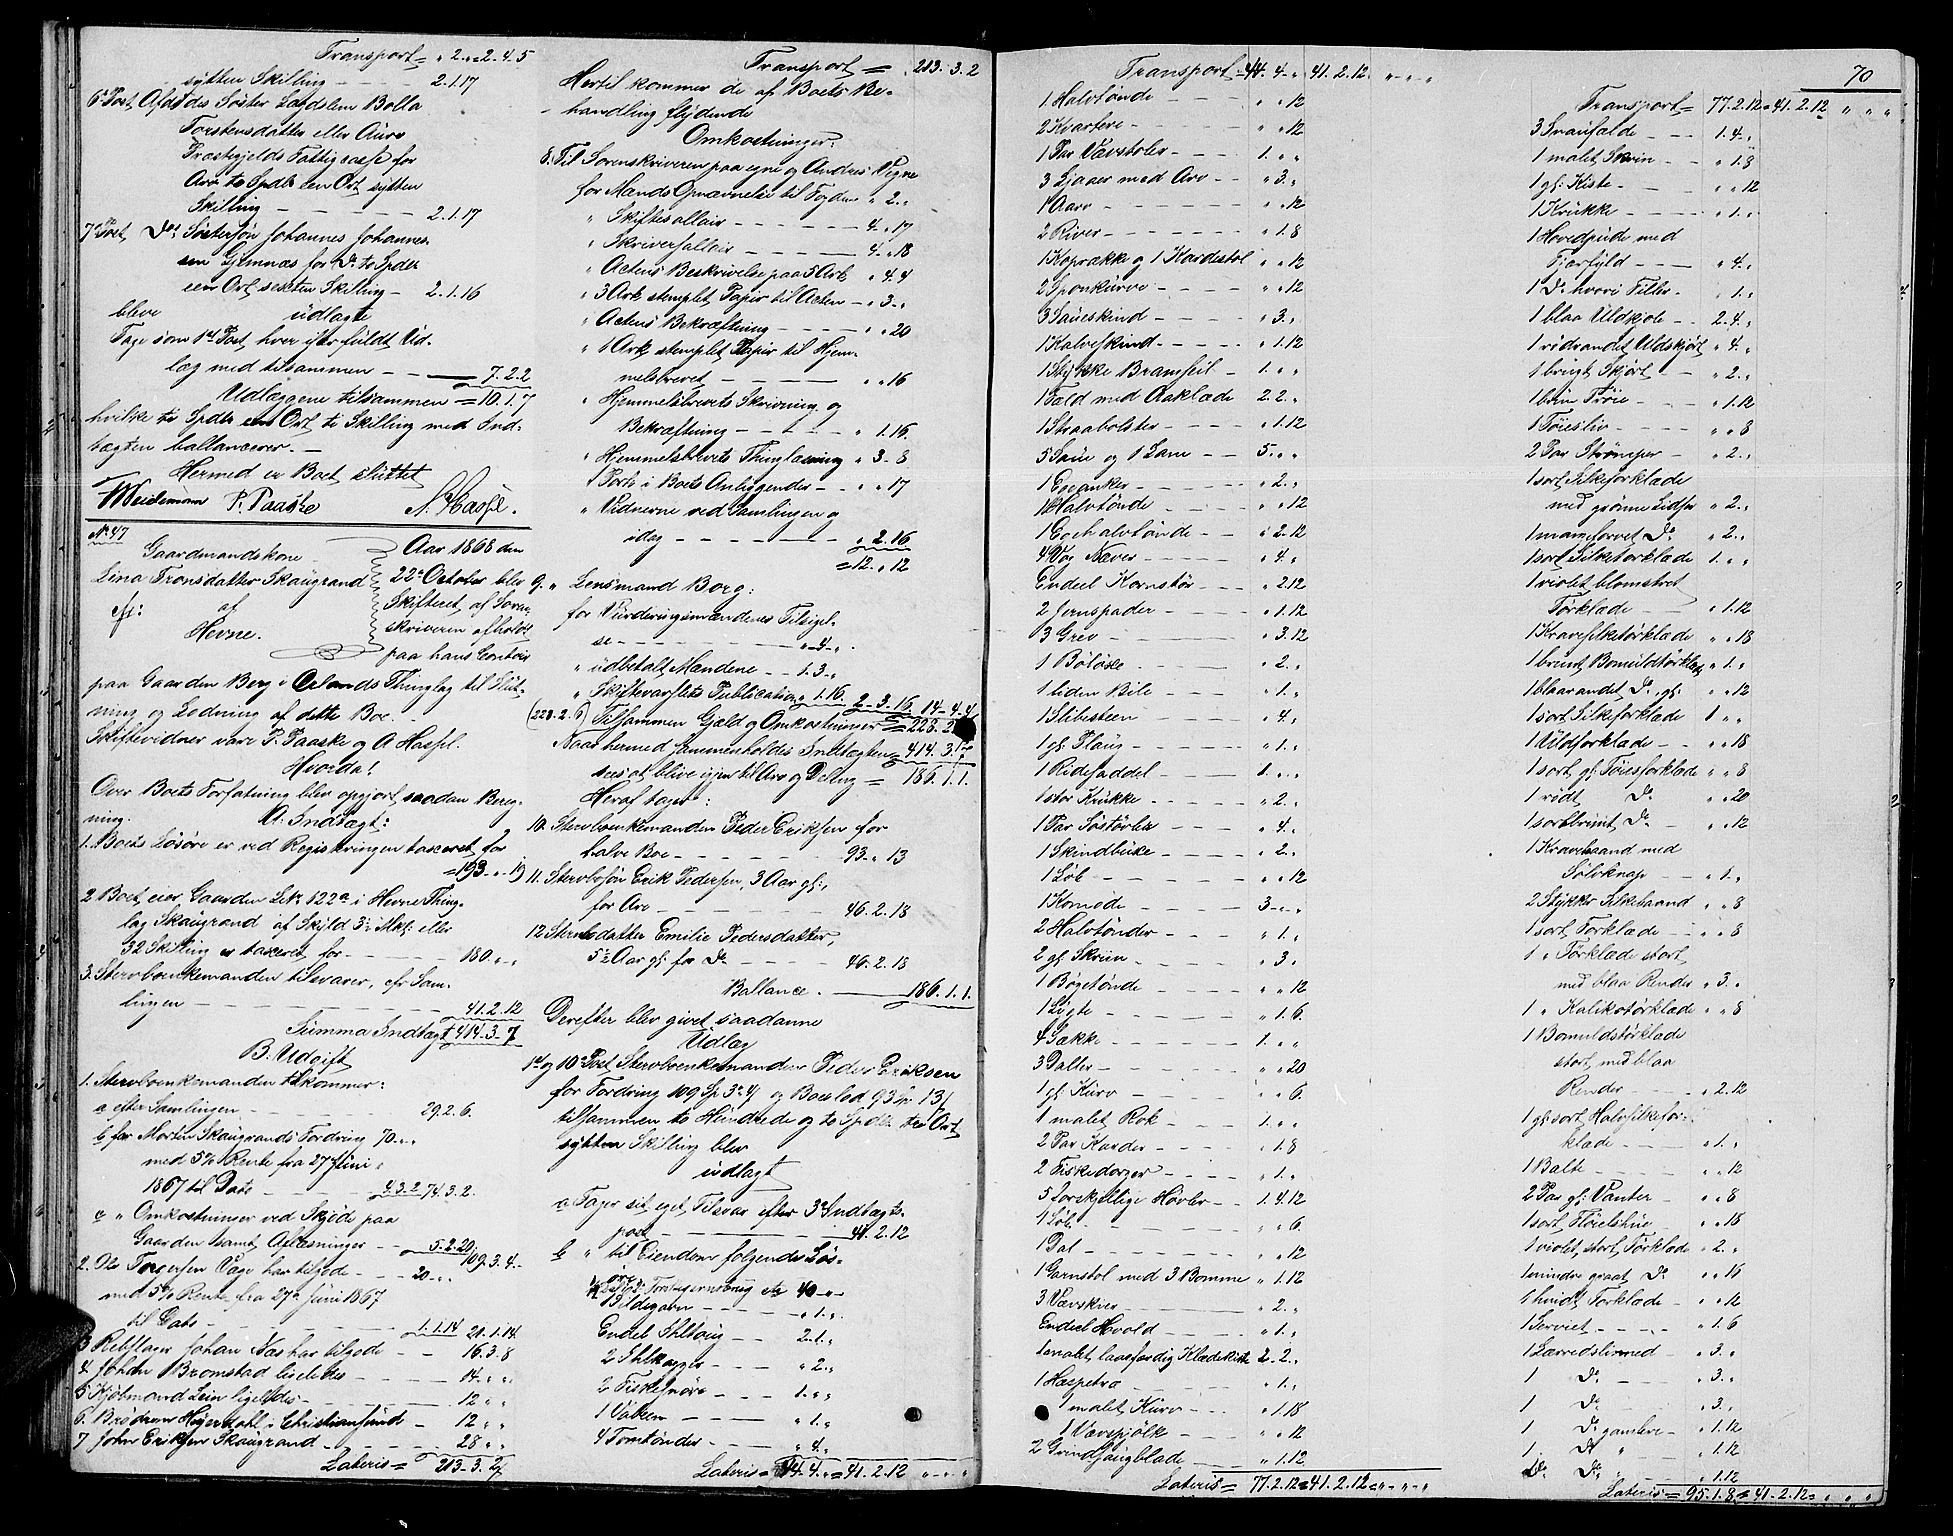 Transport = „ 2. „ = 2. 4. 5
sytten Skilling - - - 2.1.17
6te Post, Afdødes Søster
Torstensdatter eller Aure
Præstegjelds Fattigcasse for
Arv to Spdlr een Ort sytten
Skilling - - - 2.1.17
7de Post, Do Søstersøn Johannes Johannes-
sen Gimnæs for Do to Spdlr
een Ort sexten Skilling - 2.1.16
bleve udlagte
Tage som 1ste Post hver især fuldt Ud-
læg med tilsammen - - 7.2.2
Udlæggene tilsammen = 10.1.7
hvilke ti Spdlr een Ort ti Skilling med Ind-
tægten ballancerer. -
Hermed er Boet sluttet
Weidemann P. Paaske A. Hassel.
No 47
Gaardmandskone
Lina Tronsdatter Skaugrand
af
Hevne.
Aar 1868 den
22de October blev
Skifteret af Soren-
skriveren afholdt
paa hans Contoir
paa Gaarden Berg i Ørlands Thinglag til Slut-
ning og Lodning af dette Boe. -
Skiftevidner vare P. Paaske og A Hassel.
Hvorda!
Over Boets Forfatning blev opgjort saadan Bereg-
ning.
A. Indtægt:
1. Boets Løsøre er ved Registreringen taxeret for
= 193 - „ - 19
2 Boet eier Gaarden Lb. 122a i Hevne Thing-
lag Skaugrand af Skyld 3de Mkl: eller
32 Skilling er taxeret for - - - 180. „ „
3. Stervboenkemanden tilsvarer, cfr Sam-
lingen - - - 41.2.12
Summa Indtægt 414-3-7
B. Udgift
1. Stervboenkemanden tilkommer:
a efter Samlingen - - - 29.2.6.
b for Morten Skaugrands Fordring 70. „ „
med 5% Rente fra 27 Juni
1867 til Dato - - - 4.3.2 74.3.2.
c „ Omkostninger ved Skjøde paa
Gaarden samt Aflæsninger - 5-2-20
109.3.4 -
2. Ole Torgersen Vage har tilgode - - 20 - „ -
med 5% Rente fra 27de Juni 1867
til Dato - - - 1.1.14 21.1.14
3 Rebslager Johan Næs har tilgode - - 16.3.8
4 Johan Bromstad ligeledes - - - 14. „ „
5 Kjøbmand Lein ligeledes - - - 12 „ „
6. Brødrene Heyerdahl i Christiansund - 12 „ „
7 John Eriksen Skaugrand - - - 28 „ „
Lateris = 213-3.2
Transport = 213. 3. 2
Hertil kommer de af Boets Be-
handling flydende
Omkostninger:
8. Til Sorenskriveren paa egne og Andres Vegne
for Mands Opnævnelse til Fogden „ 2. „
„ Skiftesallair - - - 4. „ 17
„ Skriversallair - - - 4. „ 18
„ Actens Beskrivelse paa 3 Ark „ 4. 4
„ 3 Ark stemplet Papir til Acten - „ 3. „
„ Actens Bekræftning - - - „ „ 20
„ 1 Ark stemplet Papir til Hjem-
melsbrevet - - - „ „ 16
„ Hjemmelsbrevets Skrivning og
Bekræftning - - - „ 1.16.
„ Hjemmelsbrevets Thinglæsning „ 3-8
„ Porto i Boets Anliggender - - „ „ 17
„ Vidnerne ved Samlingen og
idag - - - „ 2.16
= 12. „ 12
9. „ Lensmand Borg:
for Vurderingsmændenes Tilsigel-
se - - - „ - 4 - „ .
„ udbetalt Mændene - - 1.3. „
„ Skiftevarslets Publication „ 1.16. 2-3.16 14-4-4
(228.2.6) Tilsammen Gjæld og Omkostninger = 228.2
Naar hermed sammenholdes Indtægten = 414.3.7
sees at blive igjen til Arv og Deling = 186.1.1.
Heraf tager:
10. Stervboenkemanden Peder Eriksen for
halve Boe - - - 93. „ 13
11. Stervbosøn Erik Pedersen, 3 Aar gl:,
for Arv - - - 46.2.18
12 Stervbodatter Emilie Pedersdatter,
5½ Aar gl: for Do - - - 46.2.18
Ballance. - 186.1.1.
Derefter blev givet saadanne
Udlæg
1ste og 10de Post, Stervboenkemanden Peder Eriksen
for Fordring 109 Sp 3 Ort 4 og Boeslod 93 Sp 13
tilsammen to Hundrede og to Spdlr tre Ort
sytten Skilling blev
udlagt
a Tager sit eget Tilsvar efter 3de Indtægts-
post - - - 41.2.12
b „ til Eiendom følgende Løs-
øre
40 - „ -
1 Sildegarn - - - „ 1. „
Endel Shltoug - - 2.1. „
2 Shlkagger - - - „ 2. „
2 Fiskesnøre - - - 1. „ „
1 Vaken - - - „ 1. „
4 Tomtønder - - - „ 4. „
Lateris = 44.4. „ = 41.2.12 „ - „ - „
Transport = 44. 4. „ 41.2.12. „ - „ - „
1 Halvtønde - - - „ „ 12
2 Kvartere - - - „ „ 12
1 Par Vævstoler - - - 1. „ „
3 Ljaaer med Orv - - „ 3. „
1 Aare - - - „ „ 12
2 River - - - „ 1.8
1 Koprække og 1 Kardestol „ „ 12
2 Sponkurve - - - „ „ 12
3 Saueskind - - - „ 3. „
1 Kalveskind - - - „ 1.12
1 Stykke Bramseil - - 1. „ „
1 Fæld med Aaklæde 2.2. „
1 Straabolster - - - „ 1.12
5 Saue og 1 Lam - - 5. „ „
1 Egeanker - - - „ 2. „
1 Halvtønde - - - „ „ 12
1 Egehalvtønde - - „ 2.12
4 Vog Næver - - - „ 4. „
Endeel Kornstør - - „ 2.12
2 Jernspader - - - „ 1.12
3 Grev - - - „ 3.12
1 Bøløxe - - - „ 2. „
1 liden Bile - - - „ 1. „
1 Slibesteen - - - „ 4. „
1 gl: Plaug - - - „ 1. „
1 Ridesaddel - - - 1. „ „
1 stor Krukke - - - „ 2. „
1 Par Søstøvler - - - „ 4. „
1 Skindbuxe - - - „ 2. „
1 Løb - - - „ „ 12
1 Komode - - - 3 - „ „
2 Halvtønder - - - „ 1. „
2 gl: Skriin - - - „ 3. „
1 Bøgetønde - - - „ „ 12
1 Løgte - - - „ 1.6
4 Sække - - - 1. „ „
3 Daller - - - „ „ 20
1 gl: Kurv - - - „ „ 6.
1 malet Rok - - - 1. „ „
2 Par Karder - - - „ 1.8
2 Fiskedorger - - - „ 1. „
5 forskjellige Høvler - - 1.4.12
1 Løb - - - „ „ 6.
1 Dal - - - „ „ 12
1 Garnstol med 3 Bomme „ 1.12
3 Vævskeer - - - „ 2. „
Endeel Hvold - - - „ 1. „
1 malet laasfærdig Klædekiste 2.2. „
1 Haspetræ - - - „ 1. „
1 malet Kurv - - - „ 1.18
1 Vævspjølk - - - „ „ 12
2 Grindsaugblade - - „ 1.12
Lateris = 77.2.12 = 41.2.12 = „ - „ - „
70
Transport = 77.2.12 = 41.2.12 „ „ „
3 Snaufælde - - - 1.4. „
1 malet Skrin - - „ 1.8
1 gl: Kiste - - - „ „ 12
1 Krukke - - - „ 1. „
1 Hovedpude med
Fjærfyld - - - „ 4. „
1 Do hvori Filler - „ 1. „
1 blaa Uldkole - - 2.4. „
1 rødrandet Uldskjørt „ 4. „
1 brugt Skjørt - - „ 2. „
1 bruun Trøie - - „ 1.12
1 Trøiesliv - - - „ „ 8
2 Par Strømper - „ 2. „
1 sort Silkeforklæde
med grønne Lidser „ 2. „
1 mangefarvet Do „ 2. „
1 sort Silketørklæde 1. „ „
1 violet blomstret
Tørklæde - - - „ 1.12
1 Kravesilketørklæde „ „ 18
1 bruunt Bomuldtørklæde „ 1. „
1 blaarandet Do gl: „ „ 12
1 sort Silkeforklæde 1 „ „
1 Uldforklæde - - „ „ 18
1 sort gl: Tøiesforklæde „ „ 8
1 rødt Do „ „ 20
1 sortbruunt Do - „ „ 12
1 Kravebaand med
Sølvknap - - „ 1. „
2 Stykker Silkebaand „ „ 8
1 sort Forklæde - - „ „ 8
1 „ Tørklæde stort
med blaa Render „ 3. „
1 „ Kalikotørklæde „ „ 8
1 Bomuldstørklæde
stort, med blaa
Render - - - „ 2.12
1 gl: sort Halvsilkefor-
klæde - - - „ 1. „
1 Balte - - - „ „ 12
2 Par gl: Vanter - „ „ 8
1 sort Fløielshue - - „ „ 18
1 violet, stort Tørklæde „ 2. „
1 mindre graat Do „ „ 16
1 hvidt Forklæde - „ „ 12
1 Serviet - - - „ 1.6
1 Lærredslinned - „ 3. „
1 Do - - „ 3. „
1 Do - - „ 3. „
1 Do gamlere - „ 1.12
1 Do „ „ 1.12
Do Do „ „ 1.12
Lateris = 95.1.8 = 41.2.12 = „ „ „